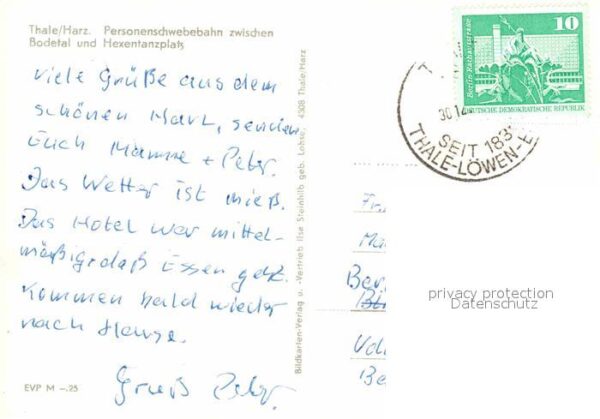 Thale/Harz. Personenschwebebahn zwischen
Bodetal und Hexentanzplatz
Viele Grüße aus dem
schönen Harz, senden
Euch Mamme + Peter.
Das Wetter ist mieß.
Das Hotel war mittel-
mäßig, daß Essen geht.
Kommen bald wieder
nach Hause.
Gruß Peter
EVP M -.25
Bildkarten-Verlag u. -Vertrieb Ilse Steinhilb geb. Lohse, 4308 Thale/Harz
10
Berlin-Rathausstraße
DEUTSCHE DEMOKRATISCHE REPUBLIK
SEIT 183
THALE-LÖWEN-E
Fr.
Ma
Ber.
Be
privacy protection
Datenschutz